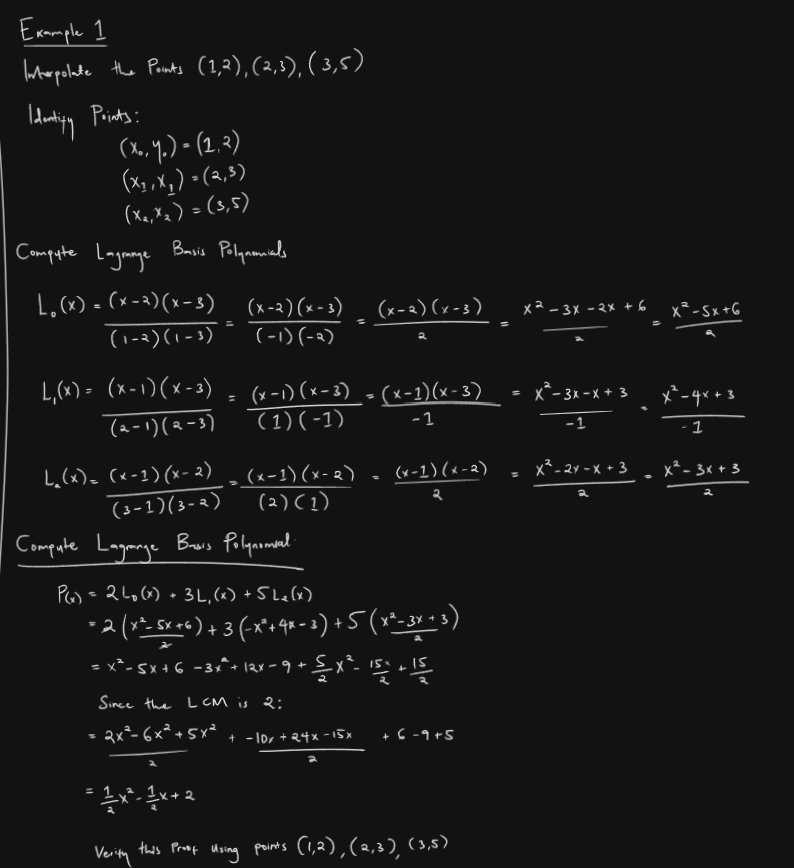 Example 1
Interpolate the Points (1,2), (2,3), (3,5)
Identify Points:
(x₀, y₀) = (1,2)
(x₁, x₁) = (2,3)
(x₂, x₂) = (3,5)
Compute Lagrange Basis Polynomials
L₀(x) = (x-2)(x-3)/(1-2)(1-3) = (x-2)(x-3)/(-1)(-2) = (x-2)(x-3)/2 = x² - 3x - 2x + 6/2 = x² - 5x + 6/2
L₁(x) = (x-1)(x-3)/(2-1)(2-3) = (x-1)(x-3)/(1)(-1) = (x-1)(x-3)/-1 = x² - 3x - x + 3/-1 = x² - 4x + 3/-1
L₂(x) = (x-1)(x-2)/(3-1)(3-2) = (x-1)(x-2)/(2)(1) = (x-1)(x-2)/2 = x² - 2x - x + 3/2 = x² - 3x + 3/2
Compute Lagrange Basis Polynomial
P(x) = 2L₀(x) + 3L₁(x) + 5L₂(x)
= 2(x² - 5x + 6/2) + 3(-x² + 4x - 3) + 5(x² - 3x + 3/2)
= x² - 5x + 6 - 3x² + 12x - 9 + 5/2 x² - 15x/2 + 15/2
Since the LCM is 2:
= 2x² - 6x² + 5x²/2 + -10x + 24x - 15x/2 + 6 - 9 + 5
= 1/2 x² - 1/2 x + 2
Verify this Proof using points (1,2), (2,3), (3,5)